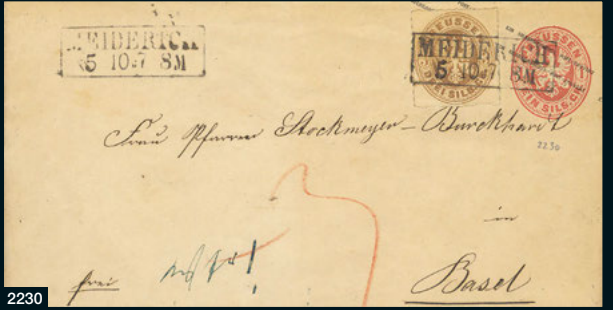 MEIDERICH
5 10·7 8M
PREUSSEN
DREI SILB.GR.
MEIDERICH
5 10·7 8M
PREUSSEN
EIN SILB.GR.
Frau Pfarrer Stockmeyer-Burckhardt
2230
in
frei
Basel
2230